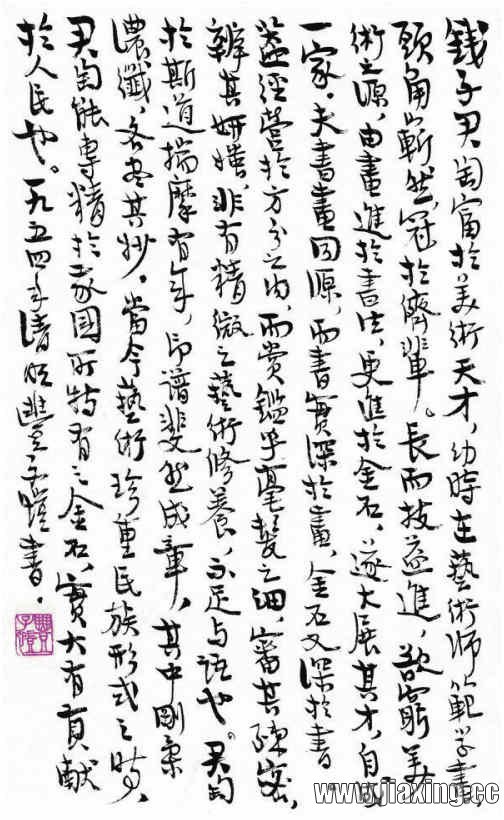 钱子君匋富於美術天才，幼時在藝術師範学畫，
頭角嶄然，冠於儕輩。長而技益進，欲窮美
術之源，由畫進於書法，更進於金石，遂大展其才，自成
一家。夫書畫同源，而書實深於畫，金石又深於書。
蓋經營於方寸之内，而赏鑑乎毫髮之細，審其疎密，
辨其妍媸，非有精微之藝術修養，不足与語也。君匋
於斯道揣摩有年，印谱斐然成章，其中剛柔
濃纖，各盡其妙。當今藝術珍重民族形式之時，
君匋能專精於我國所特有之金石，實大有貢献
於人民也。一九五四年清和豐子愷書。
豐子愷
www.jiaxing.cc